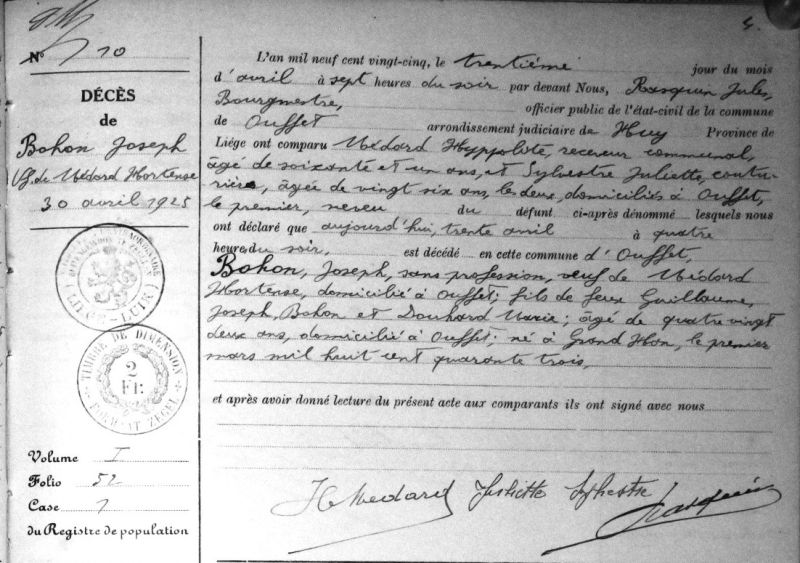 4.
N° 10
DÉCÈS
de
Bohon Joseph
Vf. de Médard Hortense
30 avril 1925
LIÈGE - LUIK
TIMBRE DE DIMENSION
2
FR.
FORMAAT ZEGEL
Volume I
Folio 52
Case 1
du Registre de population
L'an mil neuf cent vingt-cinq, le trentième jour du mois
d'avril à sept heures du soir par devant Nous, Rasquin Jules,
Bourgmestre, officier public de l'état-civil de la commune
de Ouffet arrondissement judiciaire de Huy Province de
Liége ont comparu Médard Hyppolite, receveur communal,
âgé de soixante et un ans, et Sylvestre Juliette, coutu-
rière, âgée de vingt six ans, les deux domiciliés à Ouffet,
le premier, neveu du défunt ci-après dénommé lesquels nous
ont déclaré que aujourd'hui, trente avril à quatre
heures du soir, est décédé en cette commune d'Ouffet,
Bohon, Joseph, sans profession, veuf de Médard
Hortense, domicilié à Ouffet; fils de feux Guillaume,
Joseph, Bohon et Douhard Marie; âgé de quatre vingt
deux ans, domicilié à Ouffet; né à Grand Hon, le premier
mars mil huit cent quarante trois,
et après avoir donné lecture du présent acte aux comparants ils ont signé avec nous
H Médard Juliette Sylvestre Rasquin